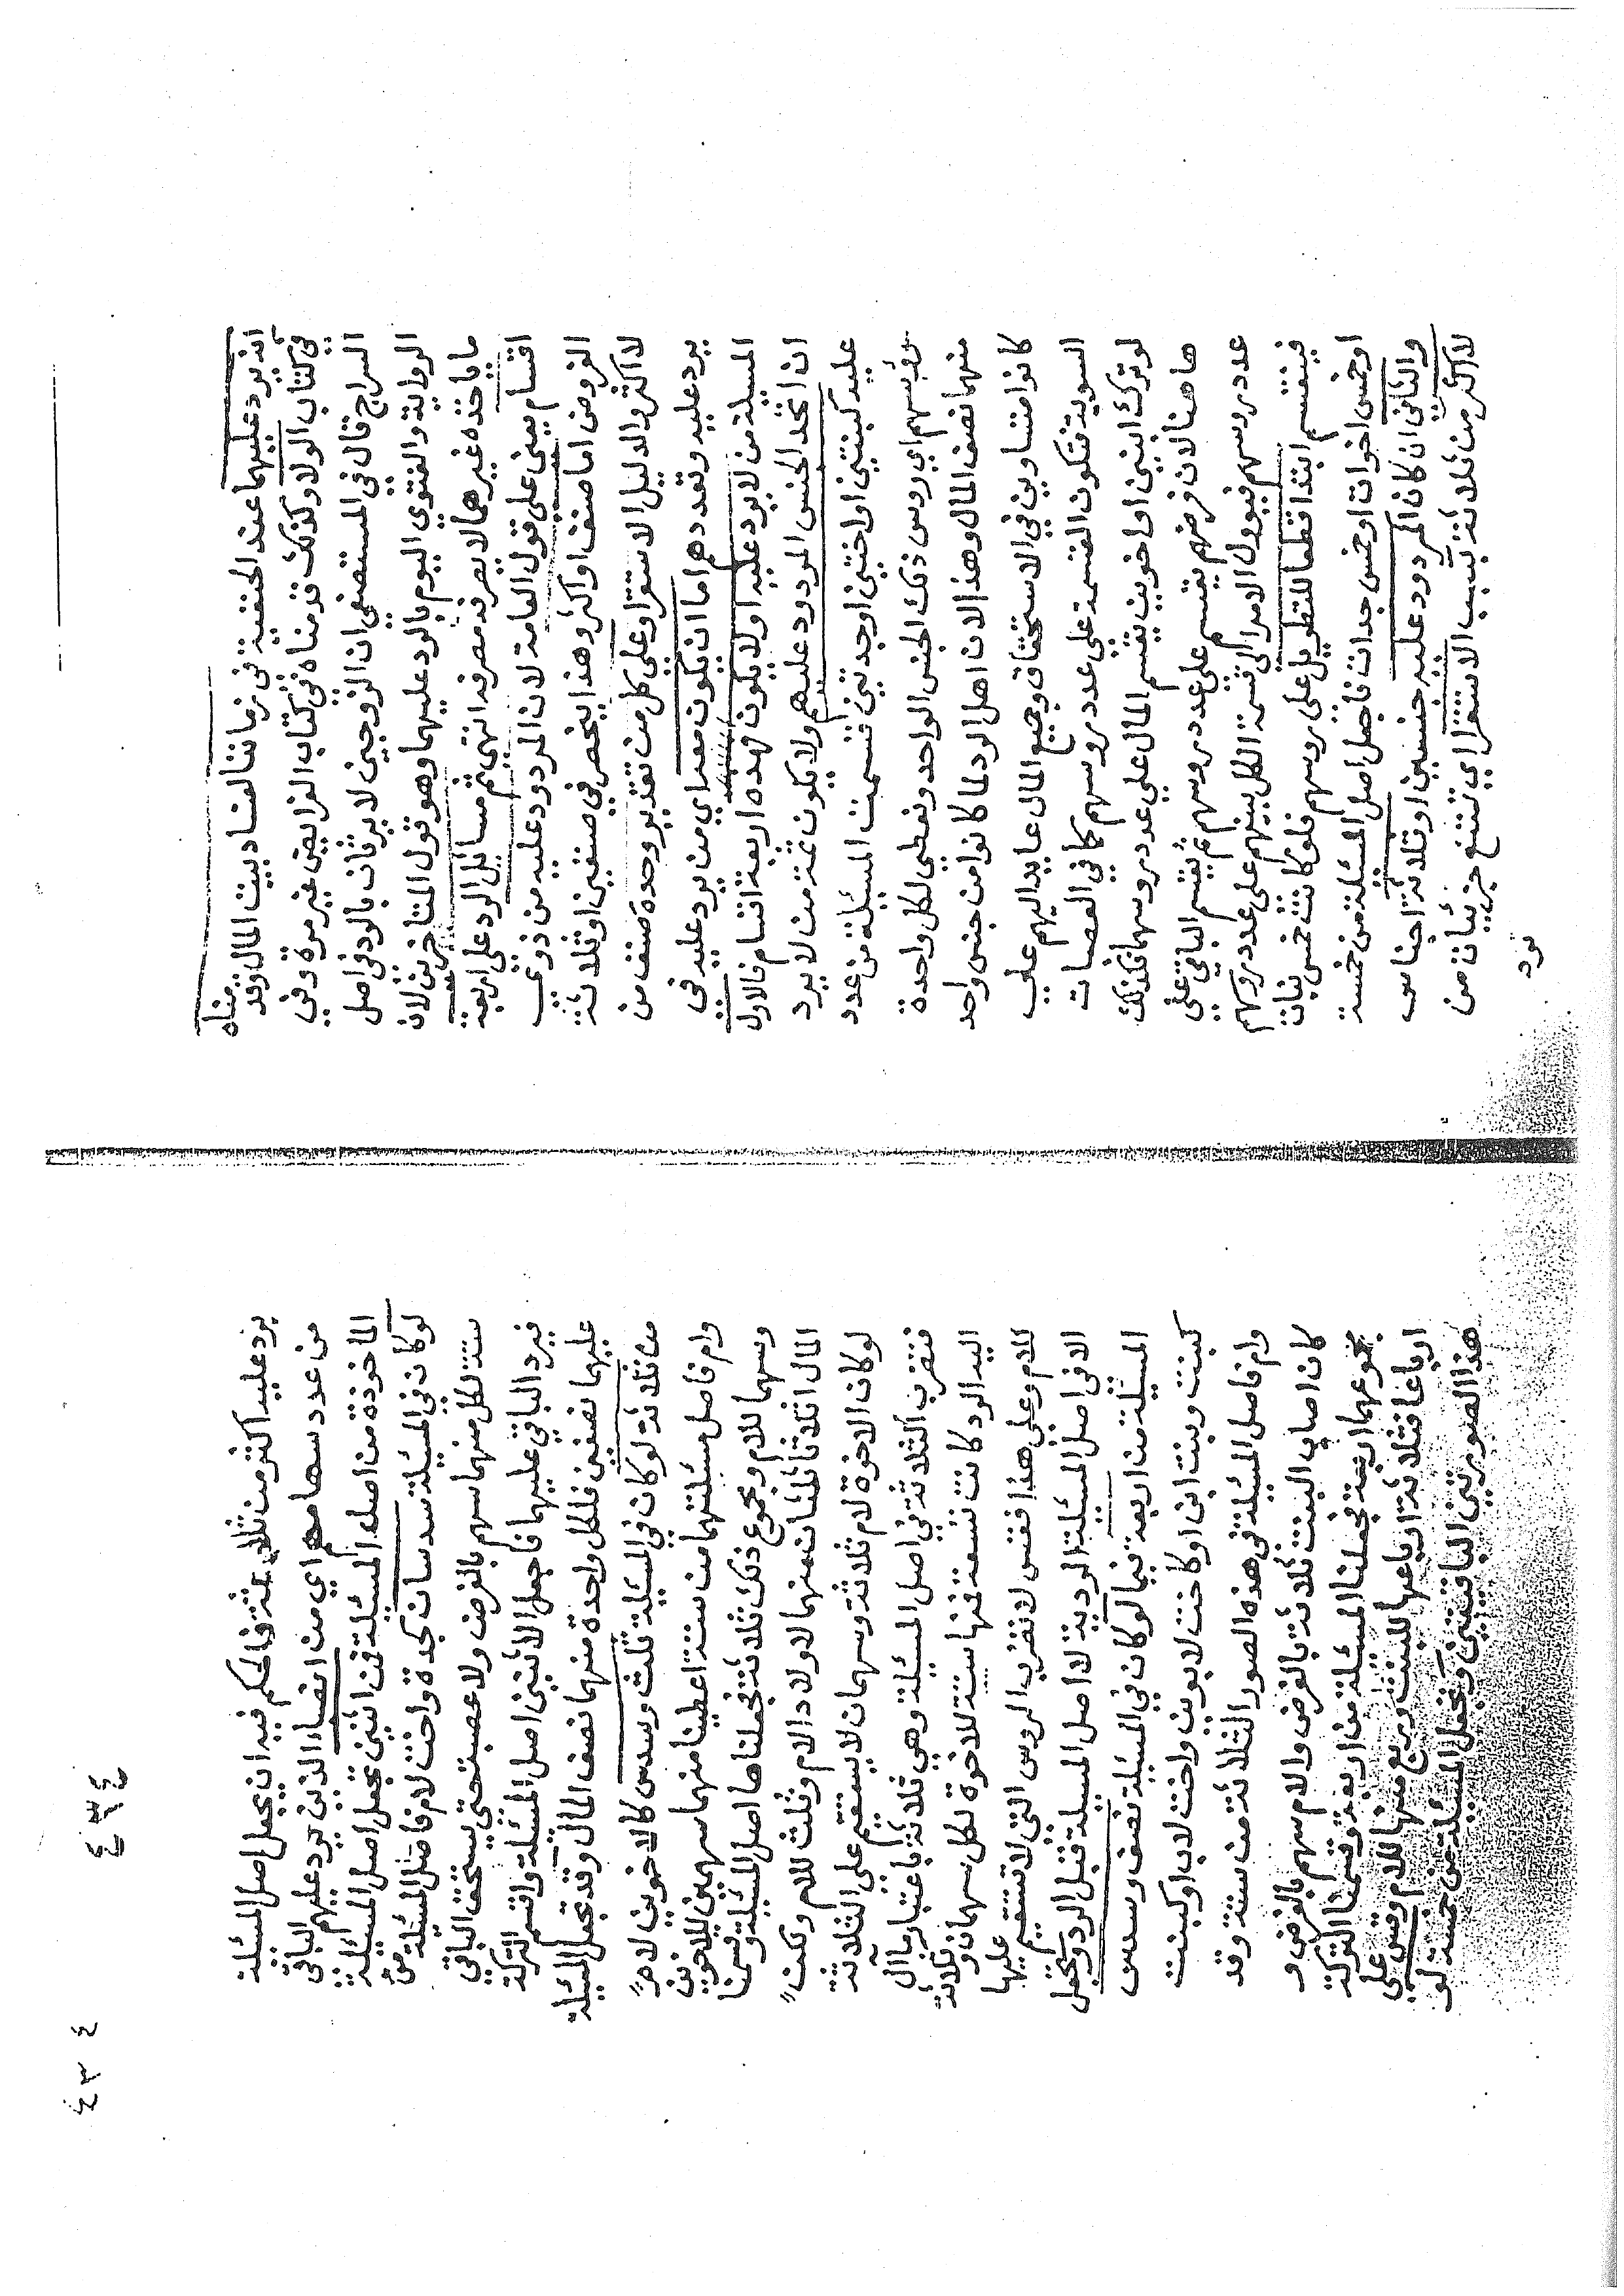 انه يرد عليهما عند الحنفية في زماننا لفساد بيت المال وقد قدمناه
في كتاب الولا وكذلك قدمناه في كتاب الفرايض غير مرة وفي
السراج قال في المستصفي ان الزوجين لا يرثان بالرد في اصل
الرواية والفتوي اليوم بالرد عليهما وهو قول المتاخرين لان
ما ياخذه غيرهما لا يصرفه مصرفه انتهي ثم مسائل الرد علي اربعة
اقسام يعني علي قول العامة لان المردود عليه من ذوي
الفروض اما صنف او اكثر وهذا ينحصر في صنفين او ثلاثة
لا اكثر والدليل الاستقرا وعلي كل من تقدير وحدة صنف من
يرد عليه وتعددهم اما ان يكون معه اي من يرد عليه في
المسيلة من لا يرد عليه او لا يكون فهذه اربعة اقسام فالاول
ان اتحد الجنس المردود عليهم ولا يكون ثمة من لا يرد
عليه كبنتين او اختين او جدتين قسمت المسيلة من عدد
روسهم اي روس ذلك الجنس الواحد ونعطي لكل واحدة
منهما نصف المال وهذا لان اهل الرد لما كانوا من جنس واحد
كانوا متساوين في الاستحقاق وجميع المال عايد اليهم علي
السوية فتكون القسمة علي عدد روسهم كما في العصبات
لو ترك ابنين او اخوين يقسم المال علي عدد روسهما فكذلك
هاهنا لان فرضهم يقسم علي عدد روسهم ثم يقسم الباقي علي
عدد روسهم فيوول الامر الي قسمة الكل بينهم علي عدد روسهم
فيقسم ابتدا قطعا للتطويل علي روسهم فلو كانت خمس بنات
او خمس اخوات او خمس جدات فاجعل اصل المسئلة من خمسة
والثاني ان كان المردود عليه جنسين او ثلاثة اجناس
لا اكثر من ثلاثة بسبب الاستقرا اي تتبع جزييات من
يرد
يرد عليه اكثر من ثلاثة فالحكم فيه ان يجعل اصل المسيلة
من عدد سهامهم اي من انصباء الذين يرد عليهم الباقي
الماخوذة من اصل المسئلة فمن اثنين تجعل اصل المسيلة
لو كان في المسيلة سدسان كجدة واخت لام فاصل المسيلة من
ستة لكل منهما سهم بالفرض ولا عصبة حتي يستحق الباقي
فيرد الباقي عليهما فاجعل الاثنين اصل المسئلة واقسم التركة
عليهما نصفين فلكل واحدة منهما نصف المال وقد تجعل المسئلة
من ثلاثة لو كان في المسيلة ثلث وسدس كالاخوين لام
وام فاصل مسئلتهما من ستة اعطينا منهما سهمين للاخوين
وسهما للام ومجموع ذلك ثلاثة فجعلناها اصل المسئلة وقسمنا
المال اثلاثا ثلثان منهما لاولاد الام وثلث للام ولكن
لو كان الاخوة لام ثلاثة وسهمان لا يستقيم علي الثلاثة
فتضرب الثلاثة في اصل المسيلة وهي ثلاثة باعتبار ما آل
اليه الرد كانت تسعة فمنها ستة للاخوة لكل سهمان وثلاثة
للام وعلي هذا فقس لا تضرب الروس التي لا تستقيم عليها
الا في اصل المسئلة الردية لا اصل المسيلة قبل الرد وتجعل
المسئلة من اربعة فيما لو كان في المسيلة نصف وسدس
كبنت وبنت ابن او كاخت لابوين واخت لاب او كبنت
وام فاصل المسيلة في هذه الصور الثلاثة من ستة وقد
كان اصاب البنت ثلاثة بالفرض والام سهم بالفرض و
مجموعهما اربعة فجعلنا المسئلة من اربعة وقسمنا التركة
ارباعا فثلاثة ارباعها للبنت وربع منها للام وقس علي
هذا الصورتين الباقيتين وتجعل المسيلة من خمسة لو
٤٣٤
٤٣٤